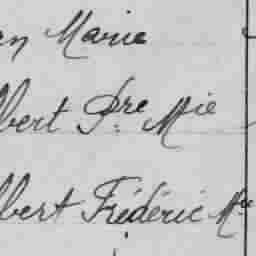 en Marie
lbert Pre Mie
lbert Frédéric Mie